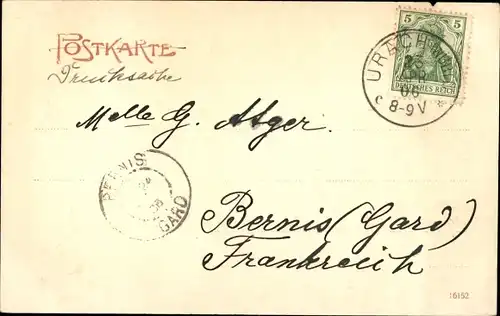 POSTKARTE
Drucksache
5 5
DEUTSCHES REICH
URACH
06
c 8-9 V
Melle G. Atger.
BERNIS
GARD
Bernis (Gard)
Frankreich
16152